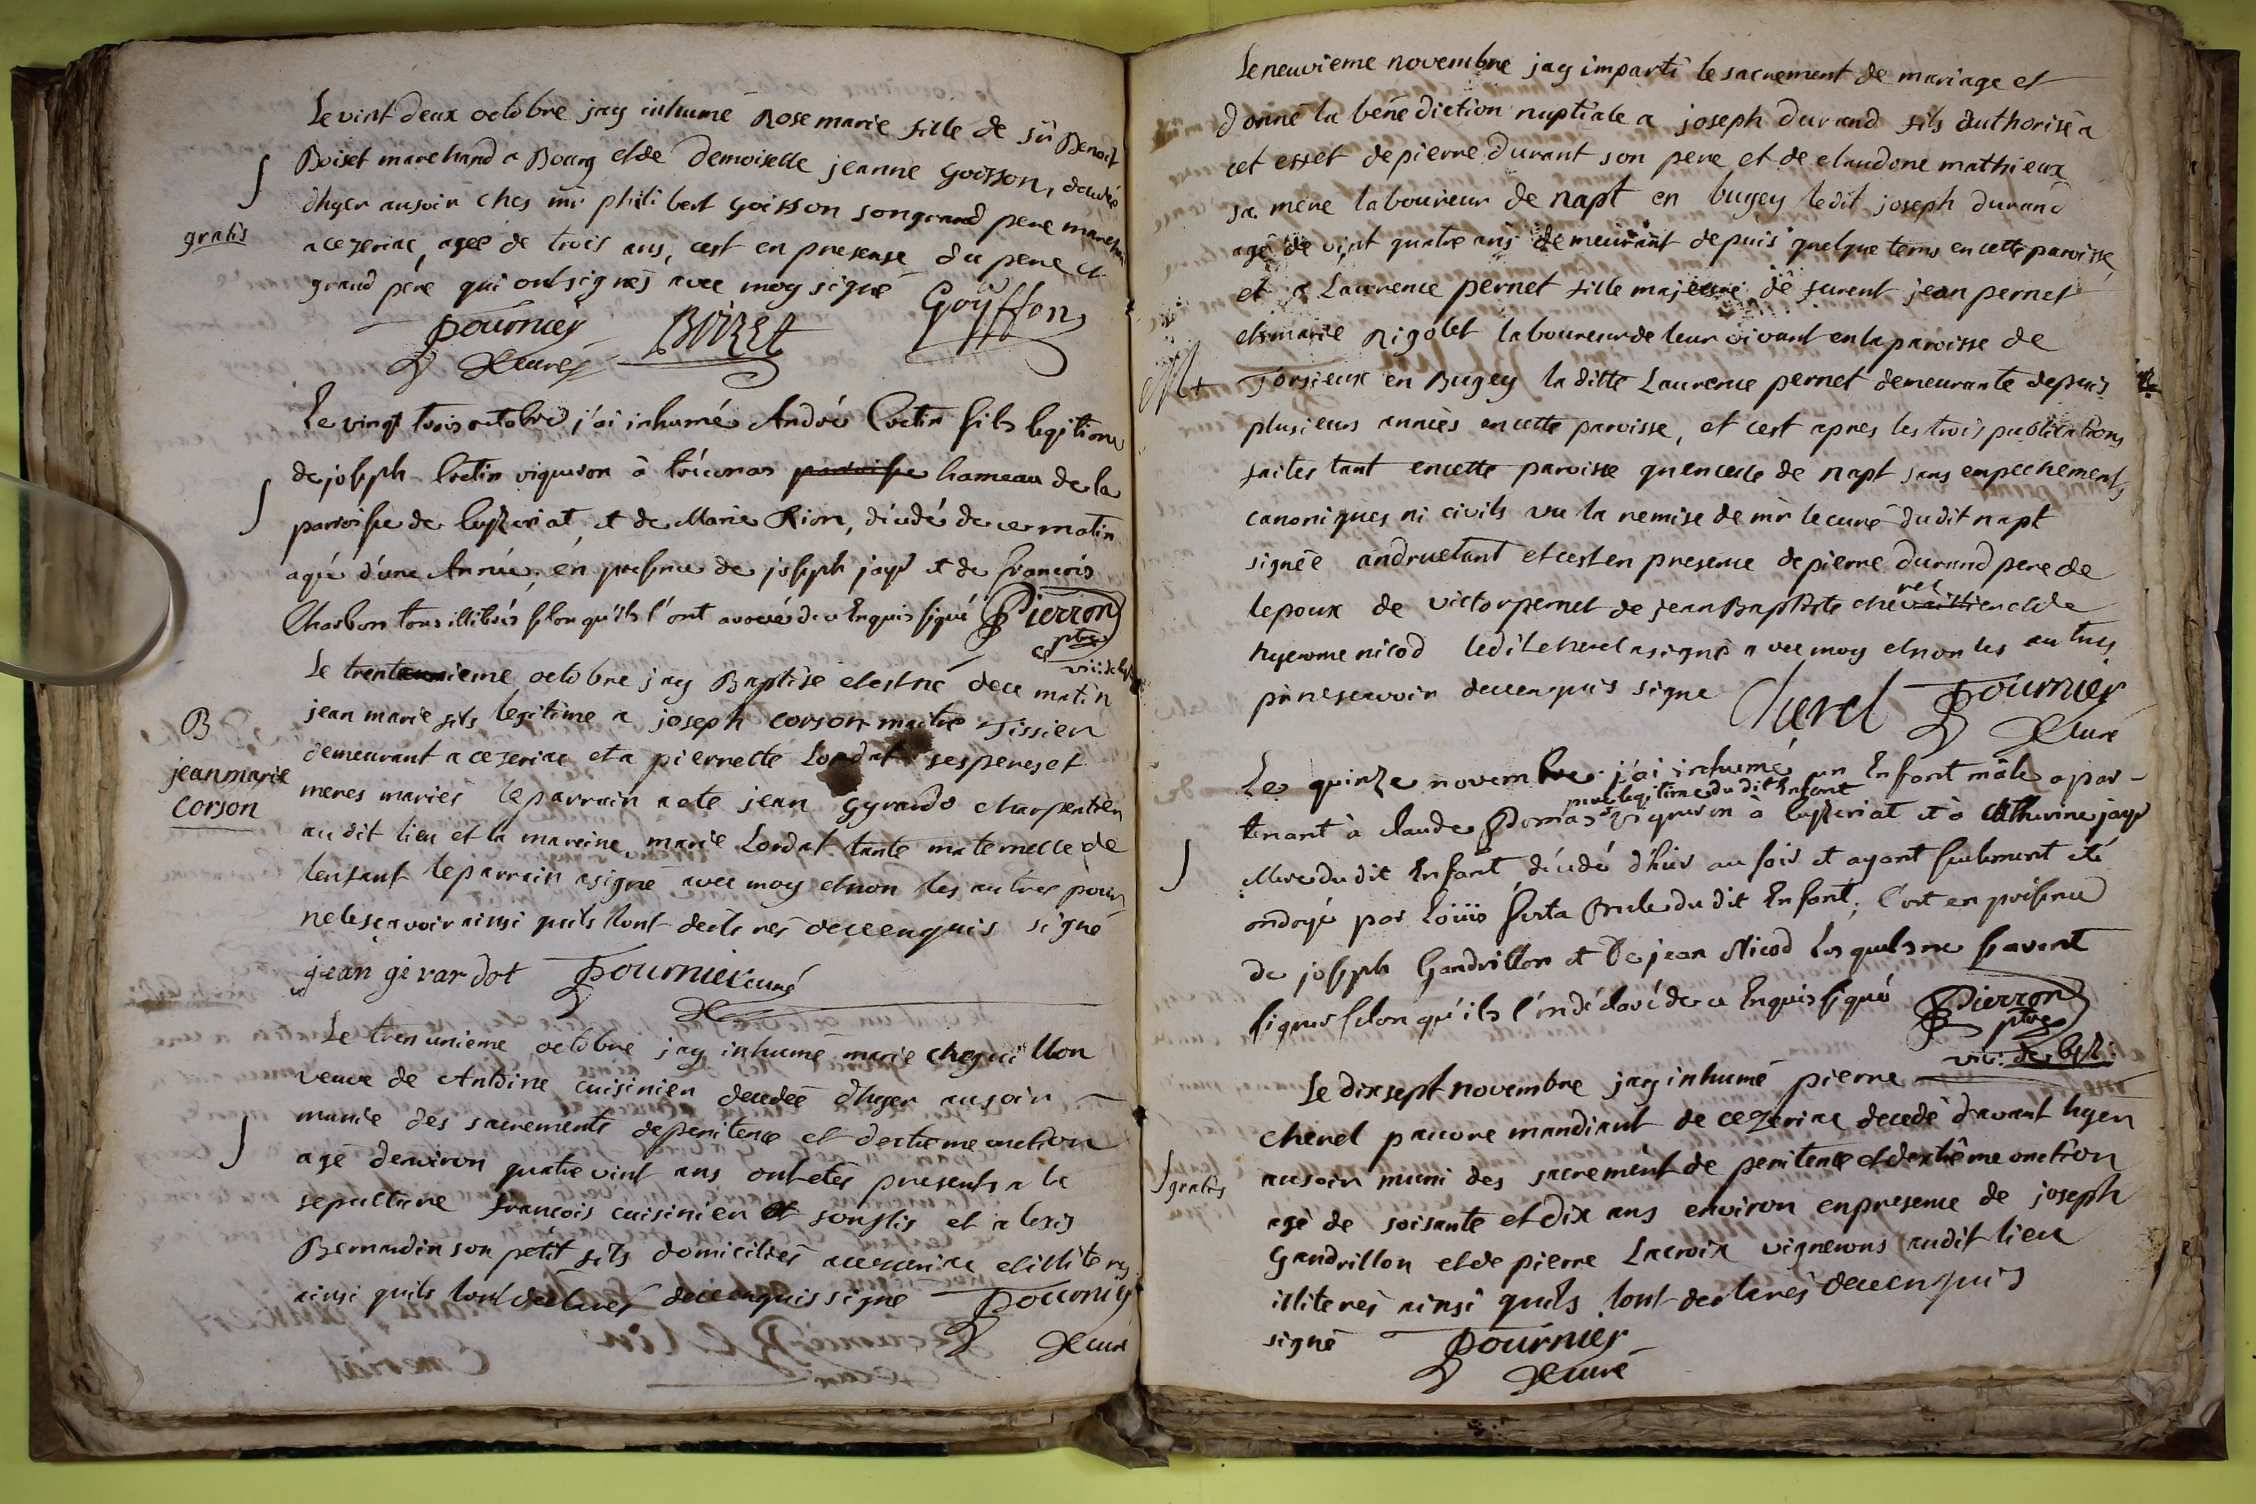 Le vint deux octobre jay inhumé Rose marie fille de sr Benoit
Boiset marchand a Bourg et de Demoiselle jeanne Goisson, decedée
dhyer au soir ches mr philibert Goisson son grand pere marchan
gratis
a cezeriac, agée de trois ans, cest en presense du pere et
grand pére qui ont signés avec moy signé
fournier BOIZET Goÿffon
curé
Le vingt trois octobre j'ai inhumé André Cretin fils legitime
de joseph Cretin vigneron à tréconas paroisse hameau de la
parroisse de Ceyzeriat, et de Marie Rion, décédé de ce matin
agé d'une Année, én présence de joseph jayr et de françois
Charbon tous illitérés selon qu'ils l'ont avoué de ce Enquis signé Pierron
ptre
vic: de
Le trentunieme octobre jay Baptisé et est né de ce matin
B
jean marie
corson
jean marie fils legitime a joseph corson maitre Tissien
demeurant a cezeriac et a pierrette Lordat ses peres et
meres mariés le parrain a eté jean Gyrardo charpentien
au dit lieu et la mareine marie Lordat tante maternelle de
lenfant le parrain a signé avec moy et non les autres pour
ne le sçavoir ainsi quils lont declarés de ce enquis signé
jean girardot fournier curé
Le trenunieme octobre jay inhumé marie cheguillon
veuve de Antoine cuisinier decedée dhyer au soir
munie des sacrements de penitence et dextreme onction
agé denviron quatre vint ans ont etés presents a la
sepulture francois cuisinier et son fils et alexis
Bernardin son petit fils domiciliés a cezeriac et illiterés
ainsi quils lont declarés de ce enquis signé fournier
curé
Le neuvieme novembre jay imparti le sacrement de mariage et
donné la bénédiction nuptiale a joseph durand fils authorisé a
cet effet de pierre durant son pere et de claudone mathieux
sa mere laboureur de napt en bugey ledit joseph durand
agé de vint quatre ans demeurant depuis quelque tems en cette paroisse,
et a Laurence pernet fille majeure de furent jean pernet
et marie Rigolet laboureur de leur vivant en la paroisse de
M
Torsieux en Bugey la ditte Laurence pernet demeurante depuis
plusieurs années en cette paroisse, et cest apres les trois publications
faites tant en cette paroisse qu'en celle de napt sans empechements
canoniques ni civils vu la remise de mr le curé dudit napt
signée andructant et cest en presence de pierre durand pere de
lepoux de victor pernet de jean Baptiste chevaillier et de
rel
hyerome nicod ledit cherel a signé avec moy et non les autres
pr ne scavoir de ce enquis signé Cherel fournier
curé
Le quinze novembre j'ai inhumé un Enfant mâle apar-
pere legitime du dit Enfant
tenant à claude Domas vigneron à Ceyzeriat et à Catherine jayr
Mere du dit Enfant décédé d'hier au soir et ayant seulement été
ondoyé par Loüis Oncle du dit Enfant; C'est en présence
de joseph Gandrillon et De jean Nicod lesquels ne savent
signer selon qu'ils l'ont déclaré de ce Enquis signé Pierron
ptre
vic: de Ceyz:
Le dixsept novembre jay inhumé pierre
cherel pauvre mandiant de cezeriac decedé davant hyer
gratis
au soir muni des sacremènt de penitence et dextrême onction
agé de soisante et dix ans environ en presence de joseph
Gandrillon et de pierre Lacroix vignerons audit lieu
illiterés ainsi quils lont declarés de ce enquis
signé fournier
curé